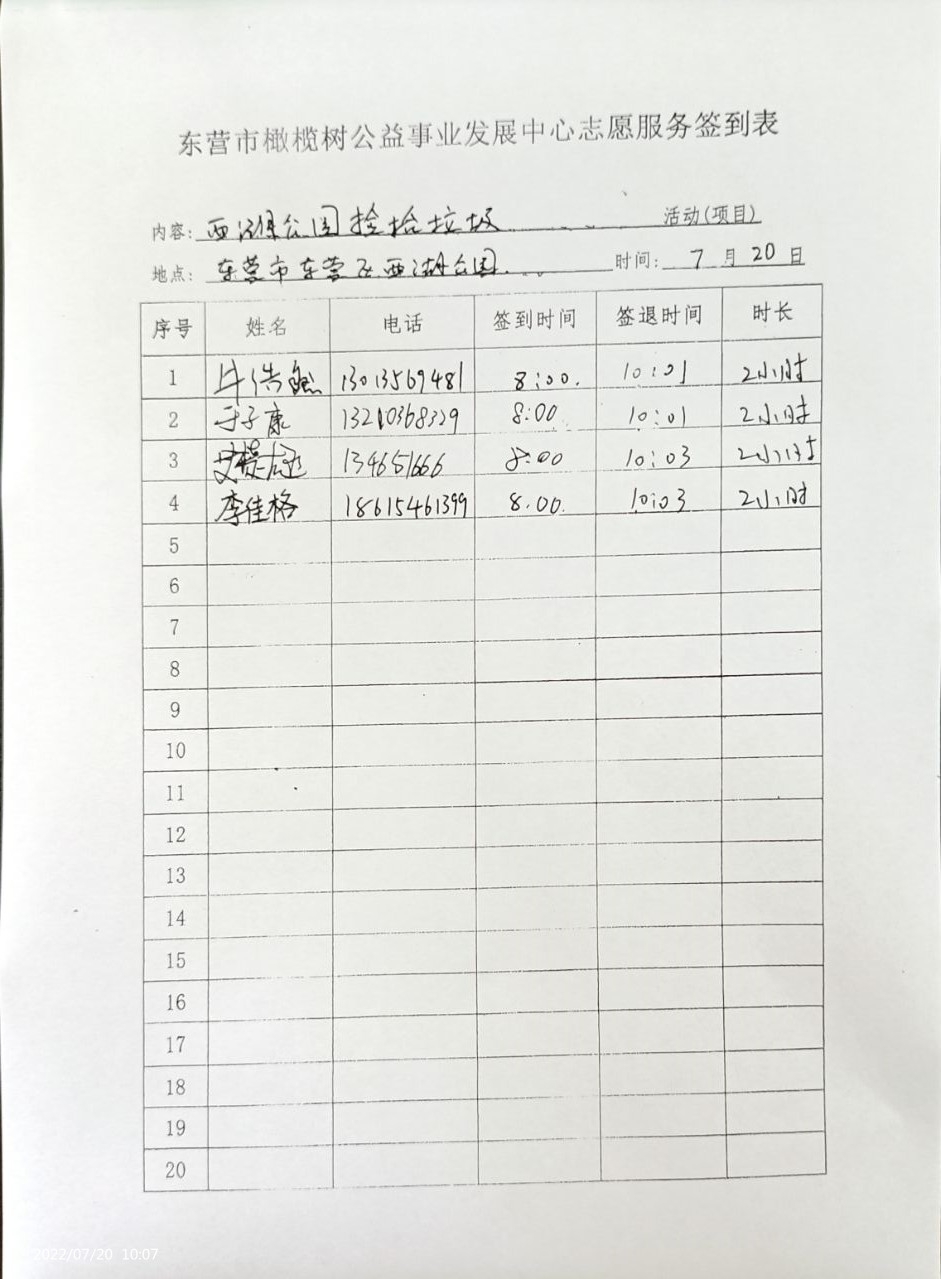 东营市橄榄树公益事业发展中心志愿服务签到表
内容: 西湖公园捡拾垃圾 活动(项目)
地点: 东营市东营区西湖公园 时间: 7月20日
序号 姓名 电话 签到时间 签退时间 时长
1 13013569481 8:00. 10:01 2小时
2 于子康 13210368329 8:00 10:01 2小时
3 134651666 8:00 10:03 2小时
4 李佳格 18615461399 8.00. 10:03 2小时
5
6
7
8
9
10
11
12
13
14
15
16
17
18
19
20
2022/07/20 10:07